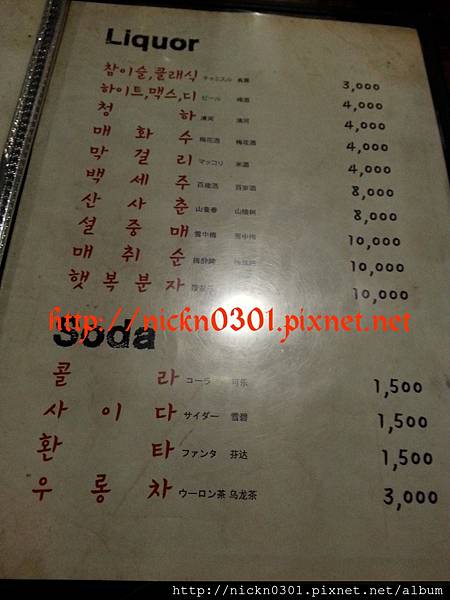 Liquor
참이슬,클래식 チャミスル 真露 3,000
하이트,맥스,디 ビール 啤酒 4,000
청 하 清河 清河 4,000
매 화 수 梅花酒 梅花酒 4,000
막 걸 리 マッコリ 米酒 4,000
백 세 주 百歳酒 百岁酒 8,000
산 사 춘 山査春 8,000
설 중 매 雪中梅 雪中梅 10,000
매 취 순 10,000
햇 복 분 자 10,000
http://nickn0301.pixnet.net
Soda
콜 라 コーラ 可乐 1,500
사 이 다 サイダー 雪碧 1,500
환 타 ファンタ 芬达 1,500
우 롱 차 ウーロン茶 乌龙茶 3,000
http://nickn0301.pixnet.net/album